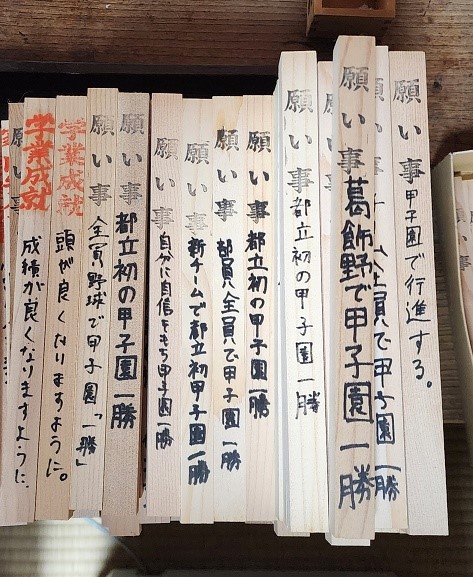 願い事 甲子園で行進する。
全員で甲子園一勝
願い事 葛飾野で甲子園一勝
願い事 都立初の甲子園一勝
願い事 都立初の甲子園一勝
願い事 部員全員で甲子園一勝
願い事 新チームで都立初甲子園一勝
願い事 自分に自信をもち甲子園一勝
願い事 都立初の甲子園一勝
願い事 全員野球で甲子園「一勝」
学業成就 頭が良くなりますように。
学業成就 成績が良くなりますように。